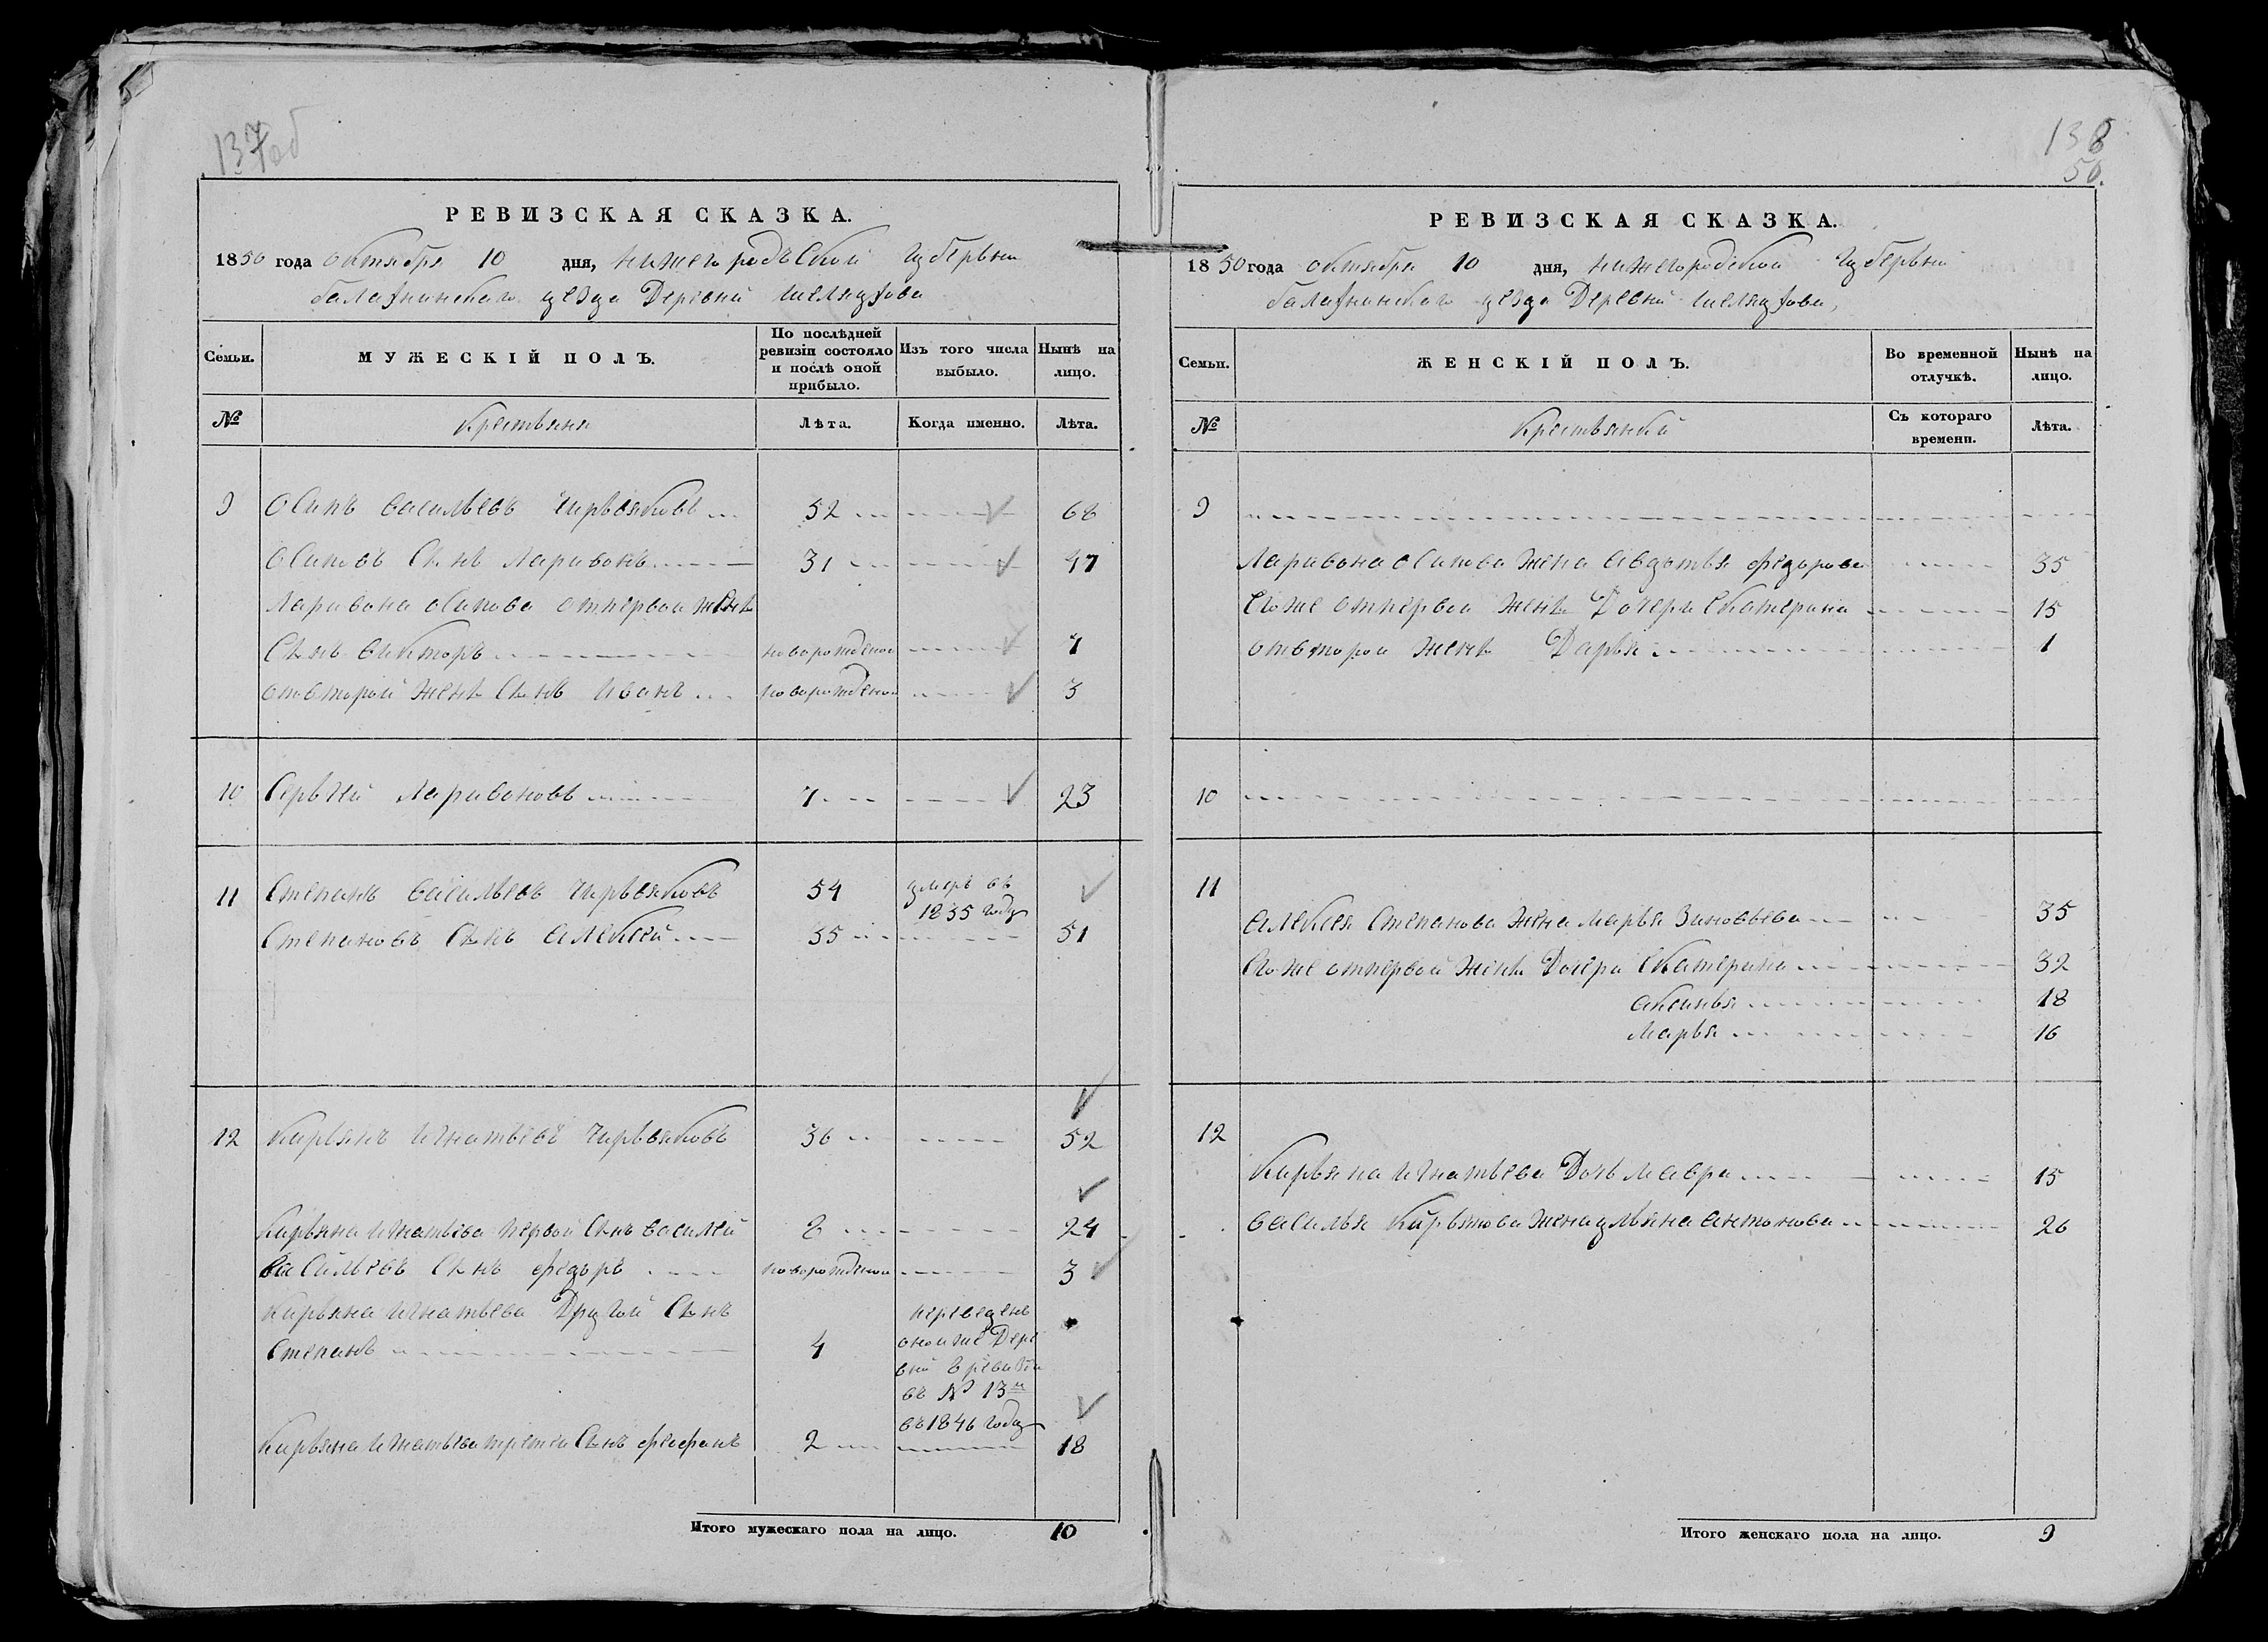 137об
РЕВИЗСКАЯ СКАЗКА.
1850 года октября 10 дня, нижегородъской губерьни
балахнинскаго уезда Деревни шеляухова
Семьи. МУЖЕСКІЙ ПОЛЪ. По послѣдней ревизіи состояло и послѣ оной прибыло. Изъ того числа выбыло. Нынѣ на лицо.
№ Крестьяня Лѣта. Когда именно. Лѣта.
9 Осипъ васильевъ чирьвяковъ 52 68
Осиповъ Сынъ Ларивонъ 31 47
Ларивона осипова отпервои жены
Сынъ викторъ новорожденои 7
отовторой жены Сынъ иванъ новорожденои 3
10 Серьгей Ларивоновъ 7 23
11 Степанъ васильевъ чирьвяковъ 54 умеръ въ 1835 году
Степановъ Сынъ алексей 35 51
12 Кирьянъ игнатьевъ чирьвяковъ 36 52
Кирьяна игнатьева первои Сынъ василей 8 24
васильевъ Сынъ федоръ новорожденои 3
Кирьяна игнатьева Другой Сынъ
Степанъ 4 переведенъ оноиже Дере вни вревизи въ № 13м въ 1846 году
Кирьяна игнатьева третеи Сынъ феофанъ 2 18
Итого мужескаго пола на лицо. 10
138
50.
РЕВИЗСКАЯ СКАЗКА.
1850 года октября 10 дня, нижегородской губерьни
балахнинскаго уезда Деревни шеляухова,
Семьи. ЖЕНСКІЙ ПОЛЪ. Во временной отлучкѣ. Нынѣ на лицо.
№ Крестьянки Съ котораго времени. Лѣта.
9
Ларивона осипова жена авдотья федорова 35
Егоже отпервои жены Дочери екатерина 15
отвторои жены Дарья 1
10
11
алексея Степанова жена марья Зиновьева 35
Егоже отпервой жены Дочери екатерина 32
аксинья 18
марья 16
12
Кирьяна игнатьева Дочь мавра 15
василья Кирьянова жена ульяна антонова 26
Итого женскаго пола на лицо. 9